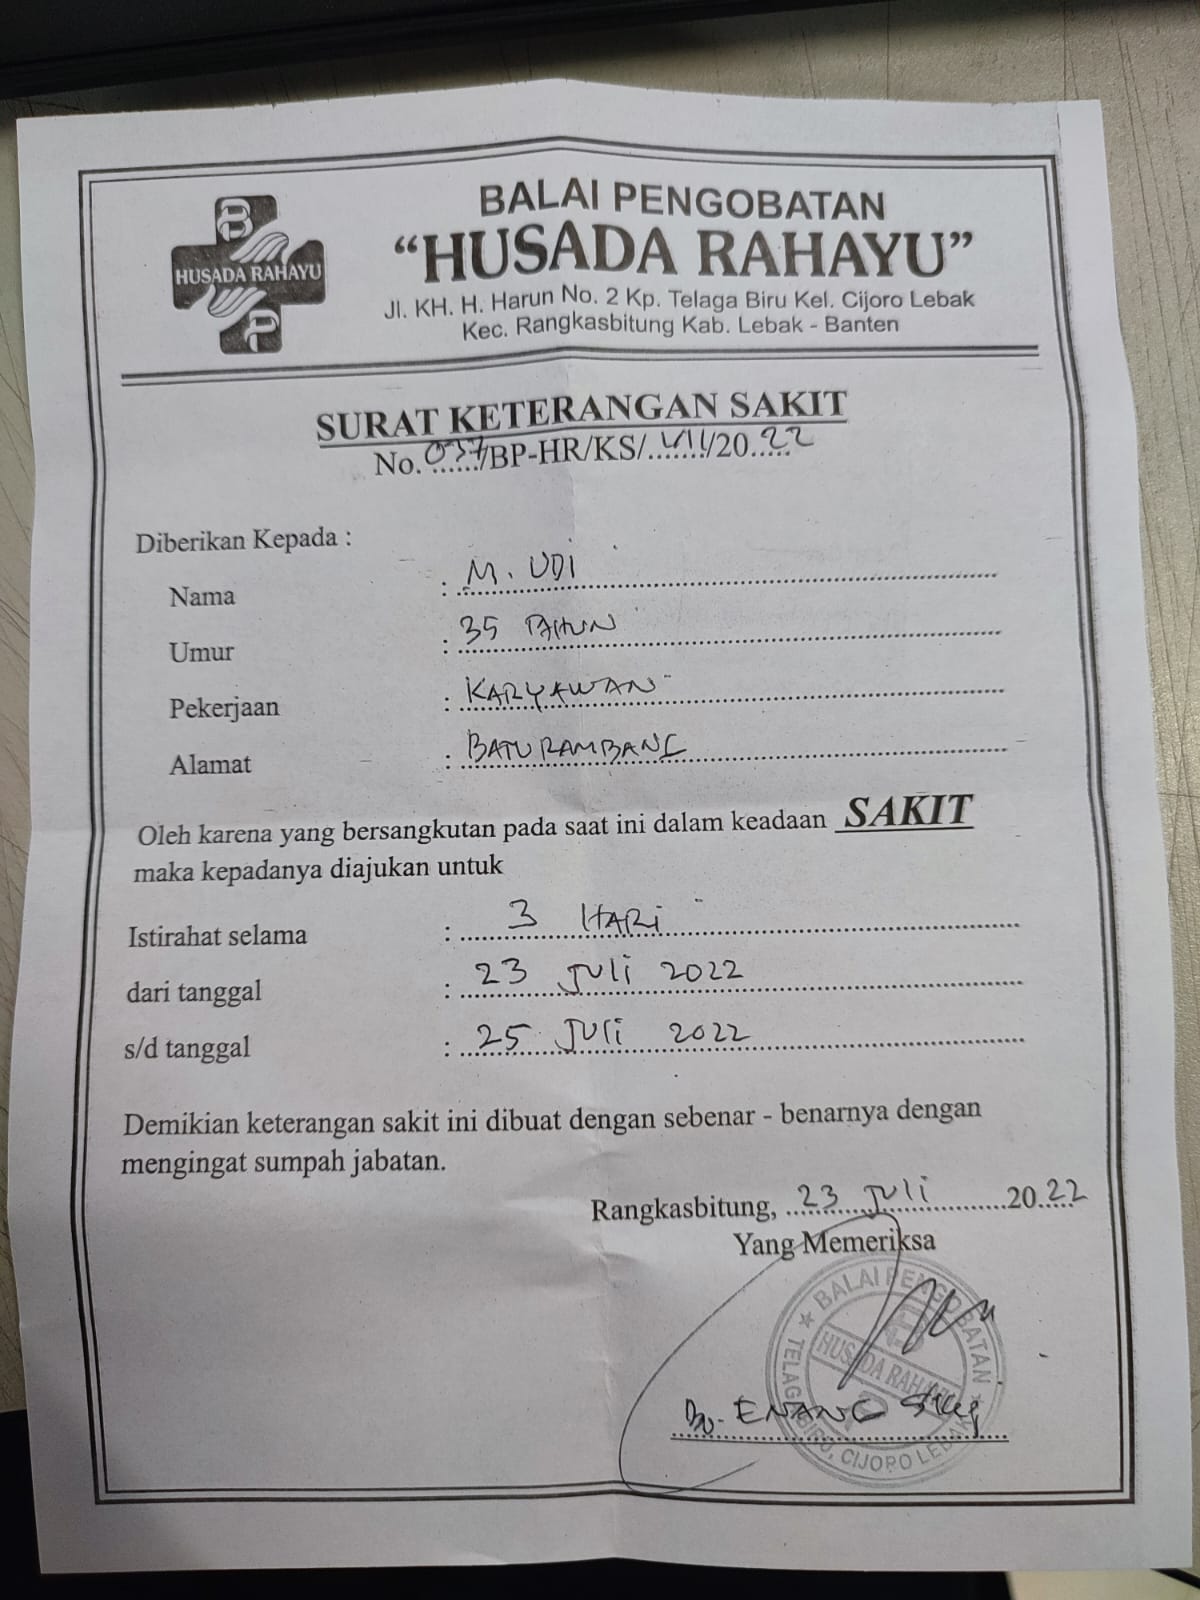 B
HUSADA RAHAYU
P
BALAI PENGOBATAN
“HUSADA RAHAYU”
Jl. KH. H. Harun No. 2 Kp. Telaga Biru Kel. Cijoro Lebak
Kec. Rangkasbitung Kab. Lebak - Banten
SURAT KETERANGAN SAKIT
No. 037/BP-HR/KS/ VII/20 22
Diberikan Kepada :
Nama : M. UDI
Umur : 35 TAHUN
Pekerjaan : KARYAWAN
Alamat : BATURAMBANG
Oleh karena yang bersangkutan pada saat ini dalam keadaan SAKIT
maka kepadanya diajukan untuk
Istirahat selama : 3 HARI
dari tanggal : 23 JULI 2022
s/d tanggal : 25 JULI 2022
Demikian keterangan sakit ini dibuat dengan sebenar - benarnya dengan
mengingat sumpah jabatan.
Rangkasbitung, 23 JULI 20 22
Yang Memeriksa
BALAI PENGOBATAN
HUSADA RAHAYU
ENANG
TELAGA BIRU, CIJORO LEBAK